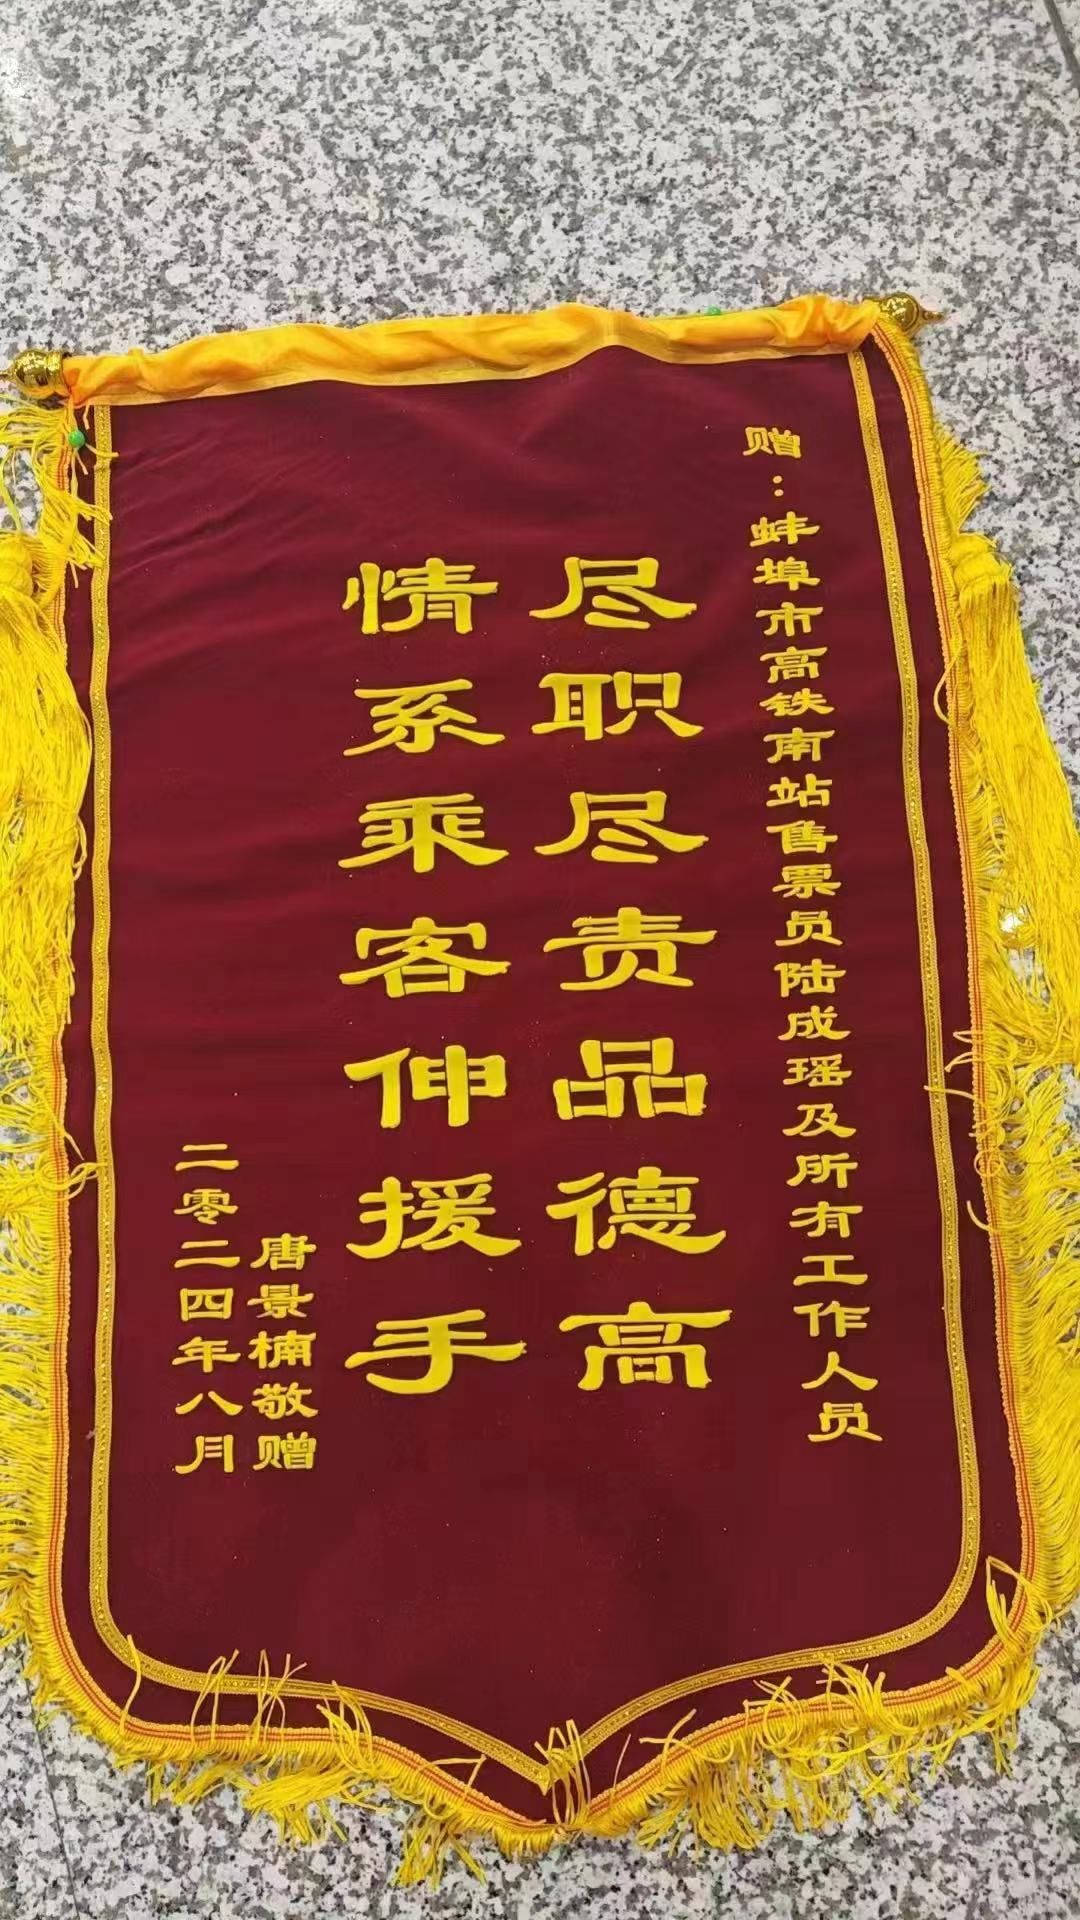 赠：蚌埠市高铁南站售票员陆成瑶及所有工作人员
尽职尽责品德高
情系乘客伸援手
唐景楠敬赠
二零二四年八月